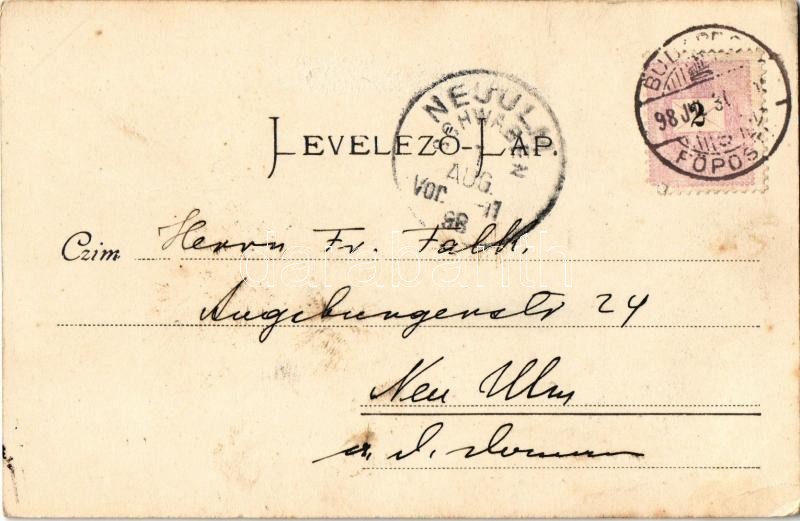 LEVELEZŐ-LAP.
NEUULM
SCHWABEN
1
AUG.
Vor. -11
98
BUDAPEST
98 JUL 31
FŐPOSTA
2
Czim Herrn Fr. Falk.
Augsburgerstr 24
Neu Ulm
a. d. Donau
darabanth